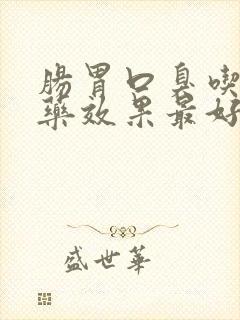 腸胃口臭喫
藥效果最好
盛世華